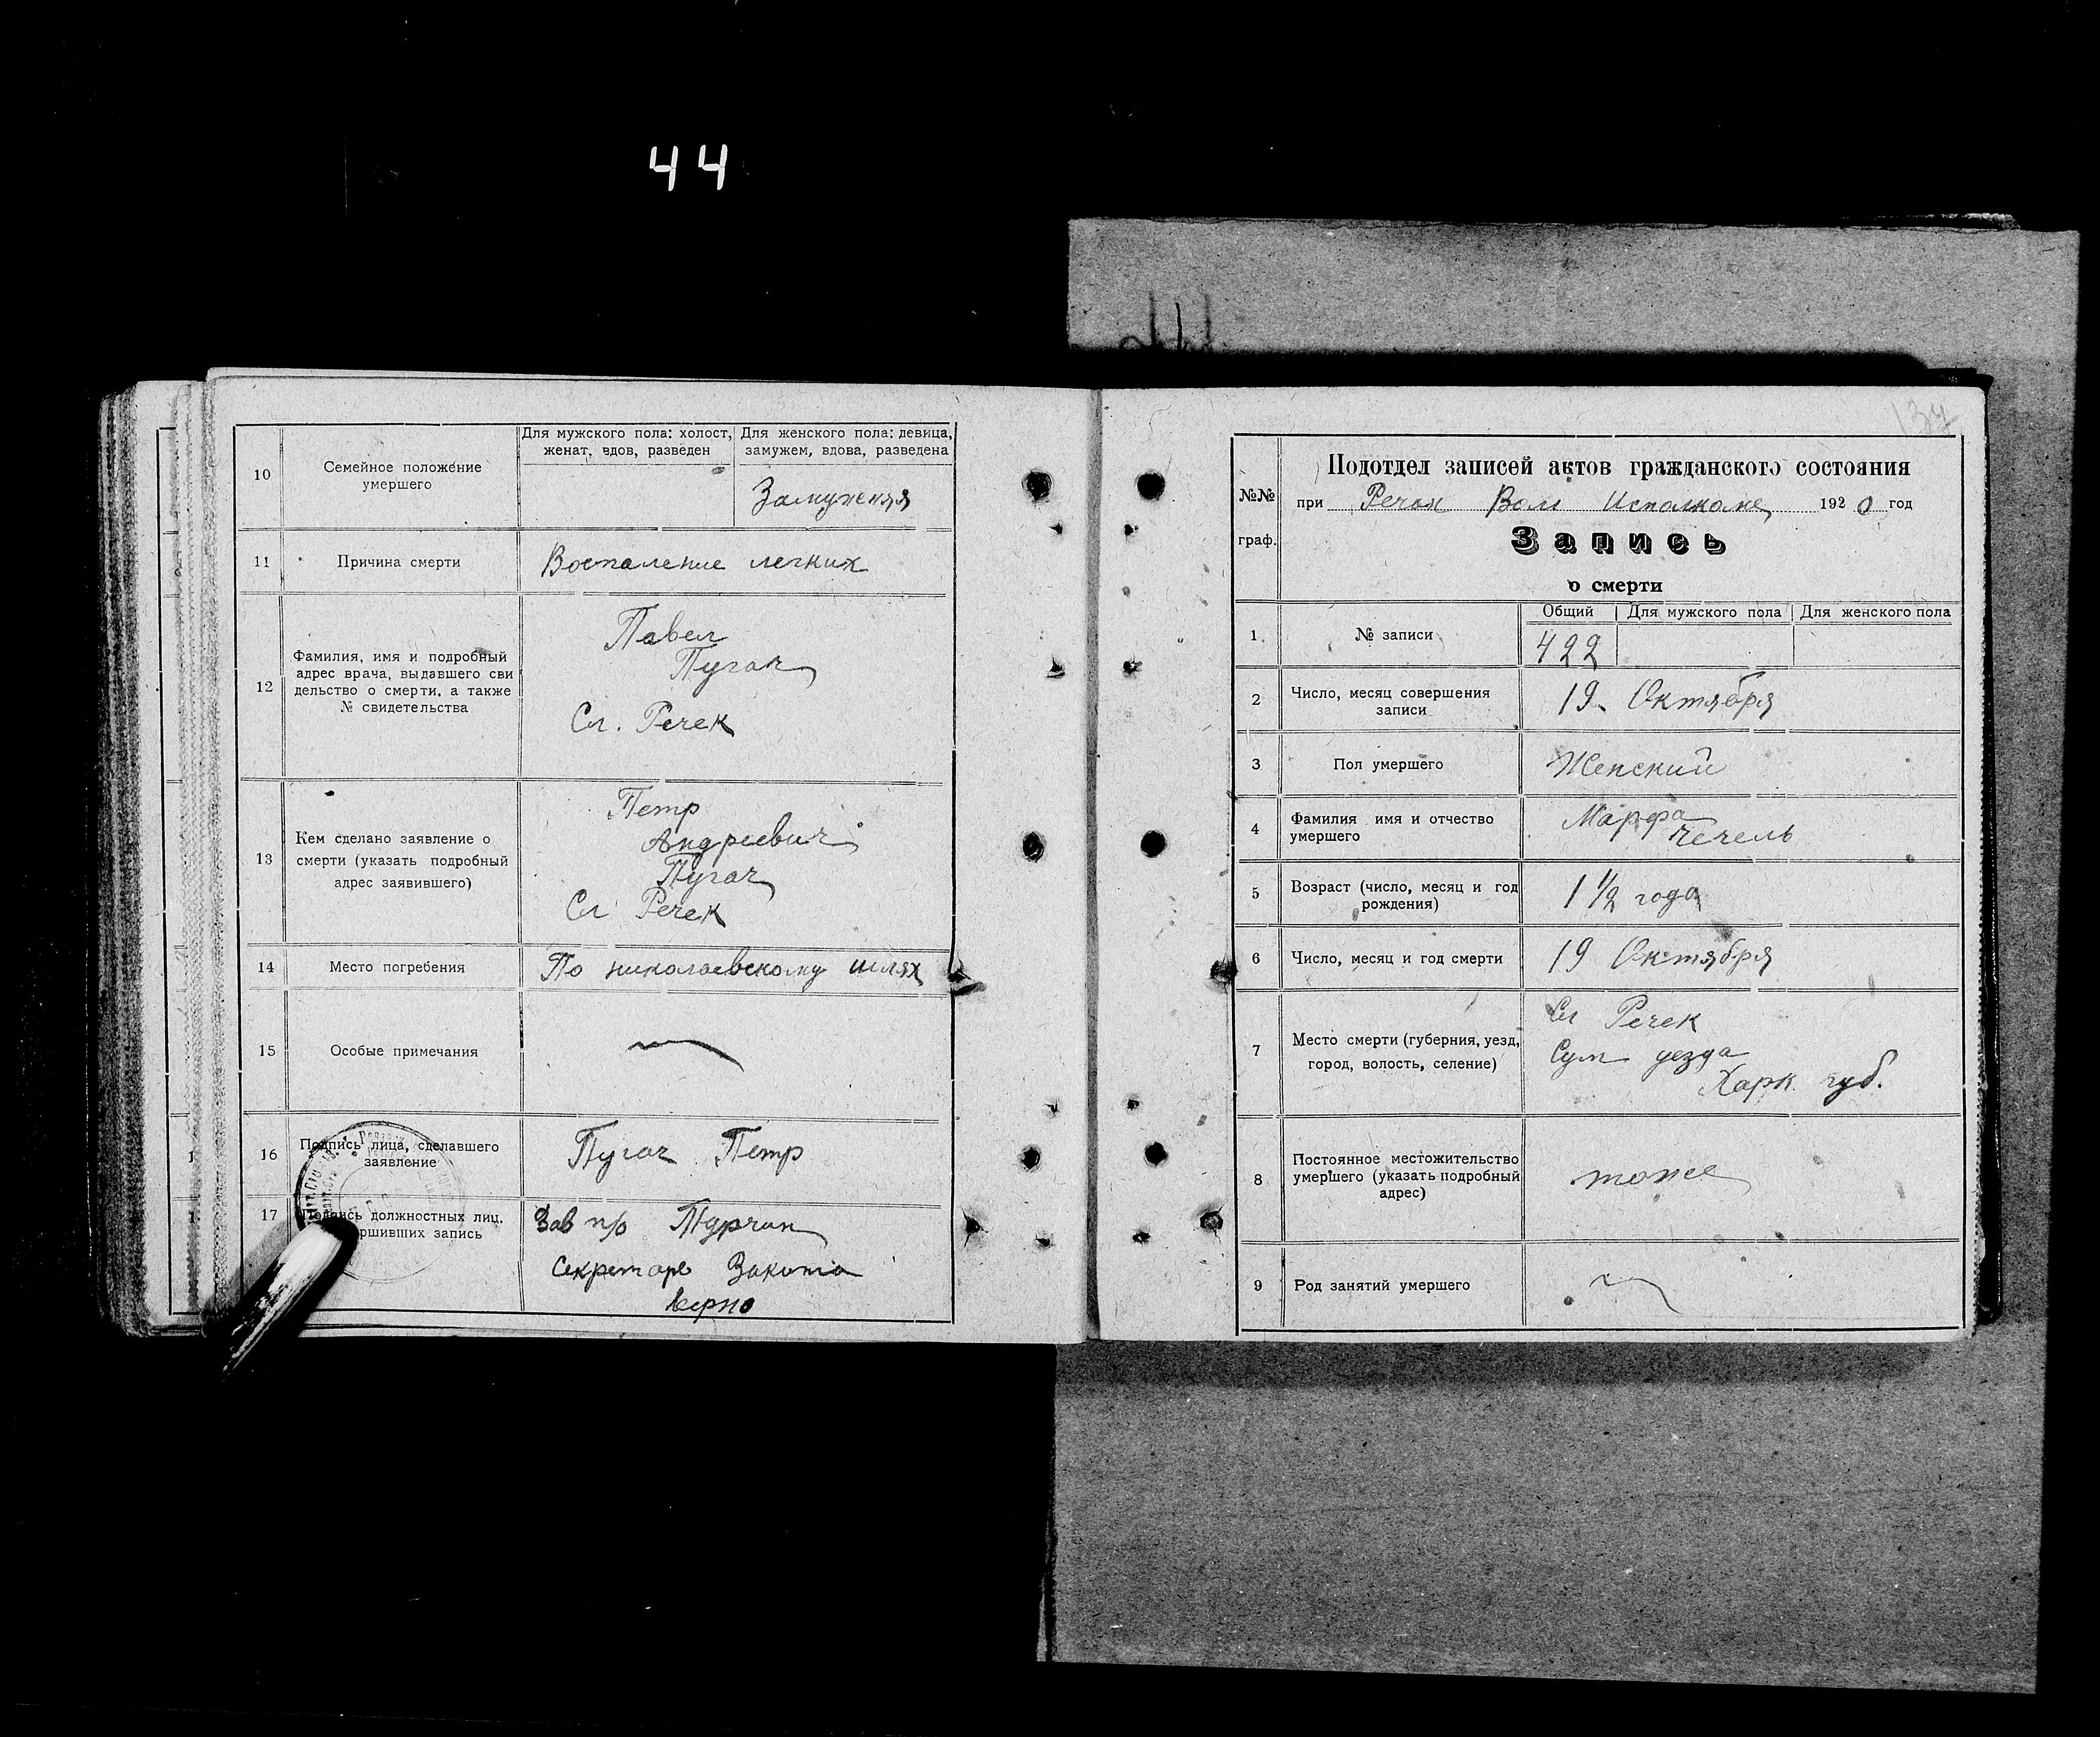 44
10
Семейное положение
умершего
Для мужского пола: холост,
женат, вдов, разведен
Для женского пола: девица,
замужем, вдова, разведена
Замужняя
11
Причина смерти
Воспаление легких
12
Фамилия, имя и подробный
адрес врача, выдавшего сви
дельство о смерти, а также
№ свидетельства
Павел
Пугач
Сл. Речек
13
Кем сделано заявление о
смерти (указать подробный
адрес заявившего)
Петр
Андреевич
Пугач
Сл Речек
14
Место погребения
По николаевскому шлях
15
Особые примечания
16
Подпись лица, сделавшего
заявление
Пугач Петр
17
Подпись должностных лиц,
ршивших запись
Зав п/о
Секретарь
Верно
137
№№
граф.
Подотдел записей актов гражданского состояния
при Речан Вол Исполкоме 1920 год
Запись
о смерти
1
№ записи
Общий
Для мужского пола
Для женского пола
422
2
Число, месяц совершения
записи
19. Октября
3
Пол умершего
Женский
4
Фамилия имя и отчество
умершего
Марфа
Чечель
5
Возраст (число, месяц и год
рождения)
1 1/2 года
6
Число, месяц и год смерти
19 Октября
7
Место смерти (губерния, уезд,
город, волость, селение)
Сл Речек
Сум уезда
Харк губ.
8
Постоянное местожительство
умершего (указать подробный
адрес)
тоже
9
Род занятий умершего